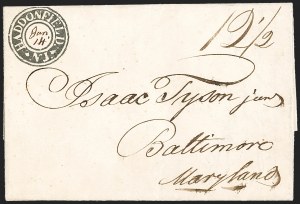 HADDONFIELD N.J.
Jan
14
12 1/2
Isaac Tyson junr
Baltimore
Maryland